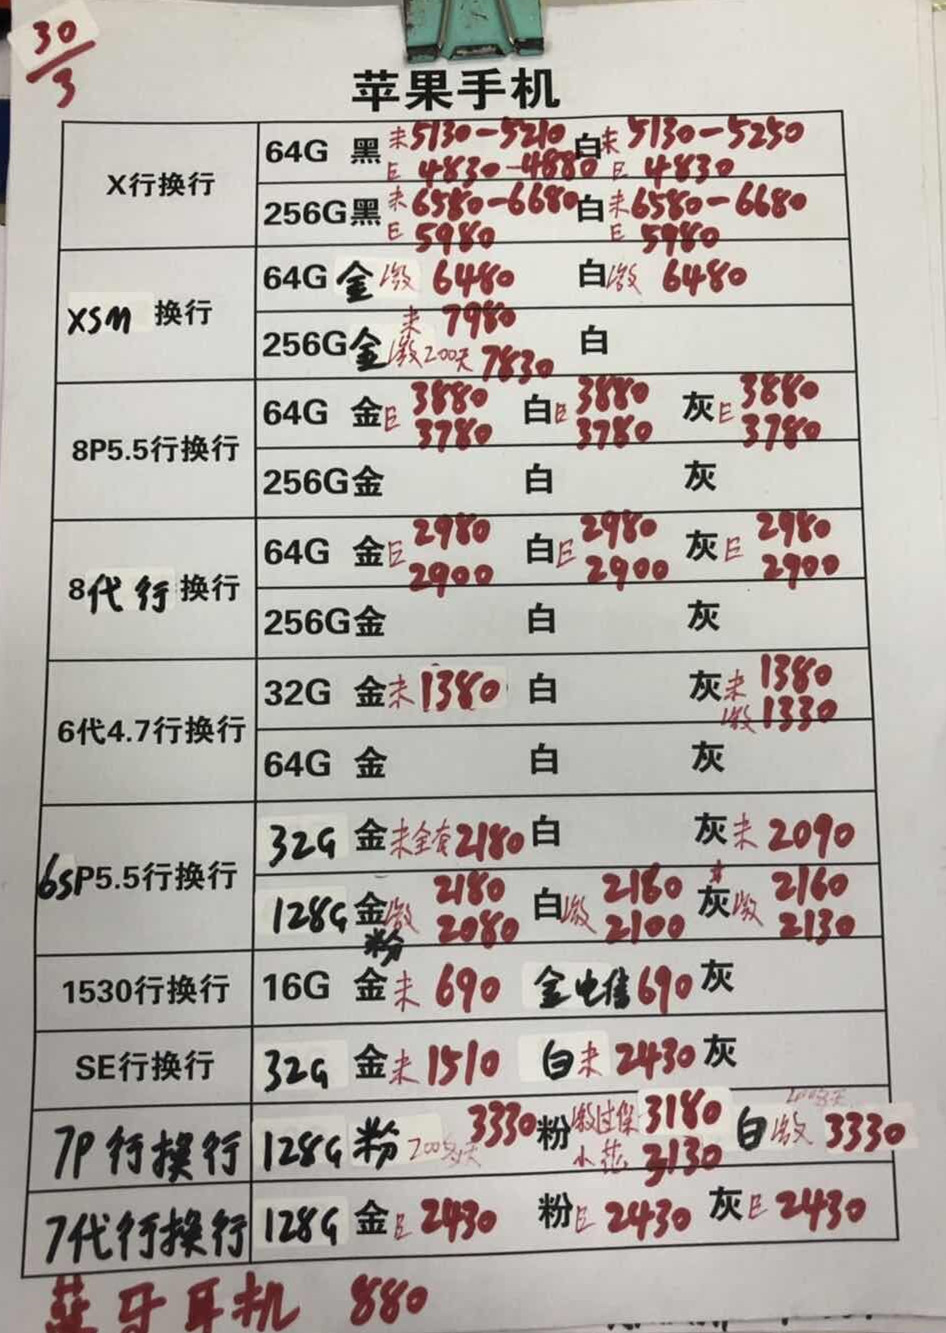 30
3
苹果手机
X行换行
64G 黑 未5130-5210 白 未 5130-5250
E 4830-4880 E 4830
256G 黑 未6580-6680 白 未6580-6680
E 5980 E 5980
XSM 换行
64G 金 激 6480 白 激 6480
256G 金 未 7980 白
激200天 7830
8P5.5行换行
64G 金 3880 白 3880 灰 3880
E 3780 E 3780 E 3780
256G 金 白 灰
8代行换行
64G 金 2980 白 2980 灰 2980
E 2900 E 2900 E 2900
256G 金 白 灰
6代4.7行换行
32G 金 未 1380 白 灰 未 1380
激 1330
64G 金 白 灰
6SP5.5行换行
32G 金 未全套2180 白 灰 未 2090
128G 金 2180 白 2160 灰 未 2160
激 2080 激 2100 激 2130
粉
1530行换行
16G 金 未 690 金 电信 690 灰
SE行换行
32G 金 未 1510 白 未 2430 灰
7P行换行
128G 粉 3330 粉 激过保 3180 白 激 3330
小花 3130
7代行换行
128G 金 E 2430 粉 E 2430 灰 E 2430
蓝牙耳机 880